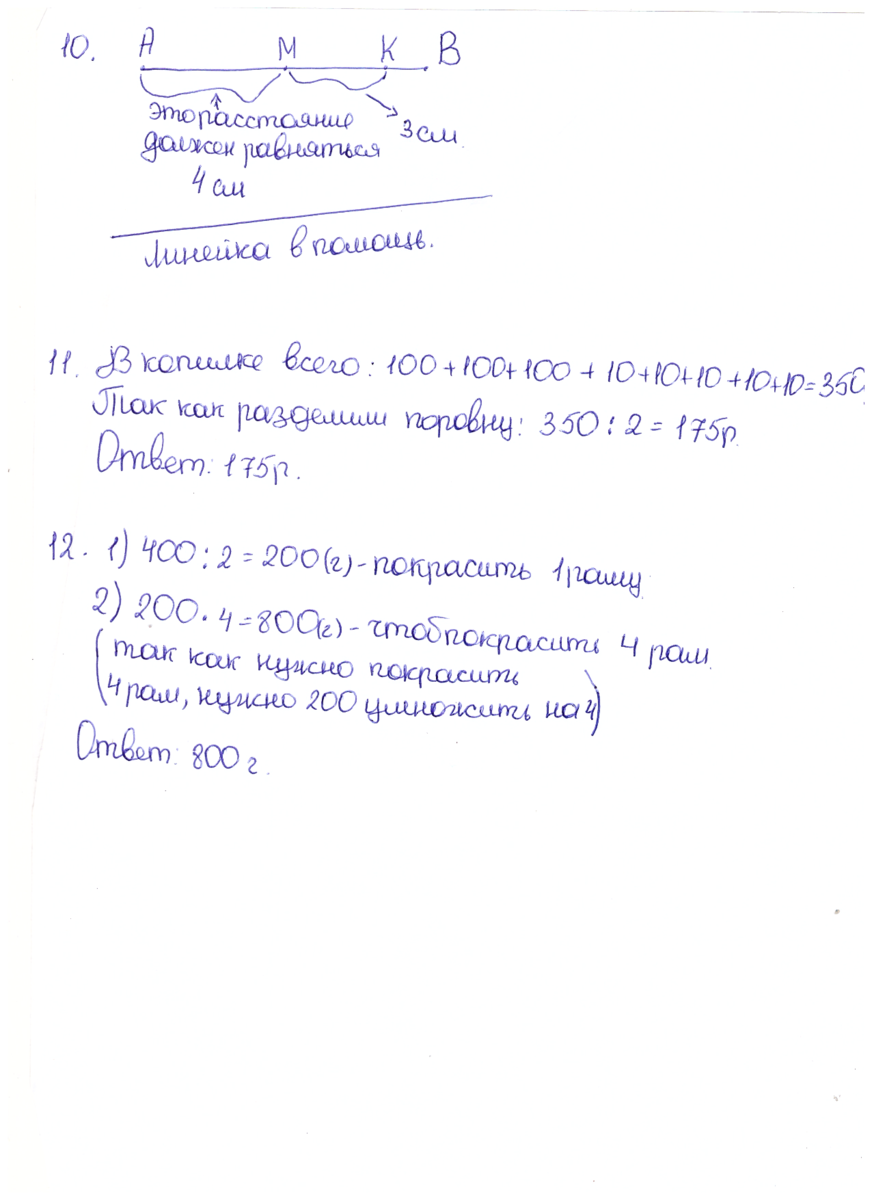 10. А М К В
это расстояние
должен равняться
4 см
3 см.
Линейка в помощь.
11. В копилке всего: 100+100+100+10+10+10+10+10=350
Так как разделили поровну: 350:2=175р.
Ответ: 175р.
12. 1) 400:2=200(г)-покрасить 1 раму
2) 200·4=800(г)-чтоб покрасить 4 рам.
(так как нужно покрасить
4 рам, нужно 200 умножить на 4)
Ответ: 800 г.